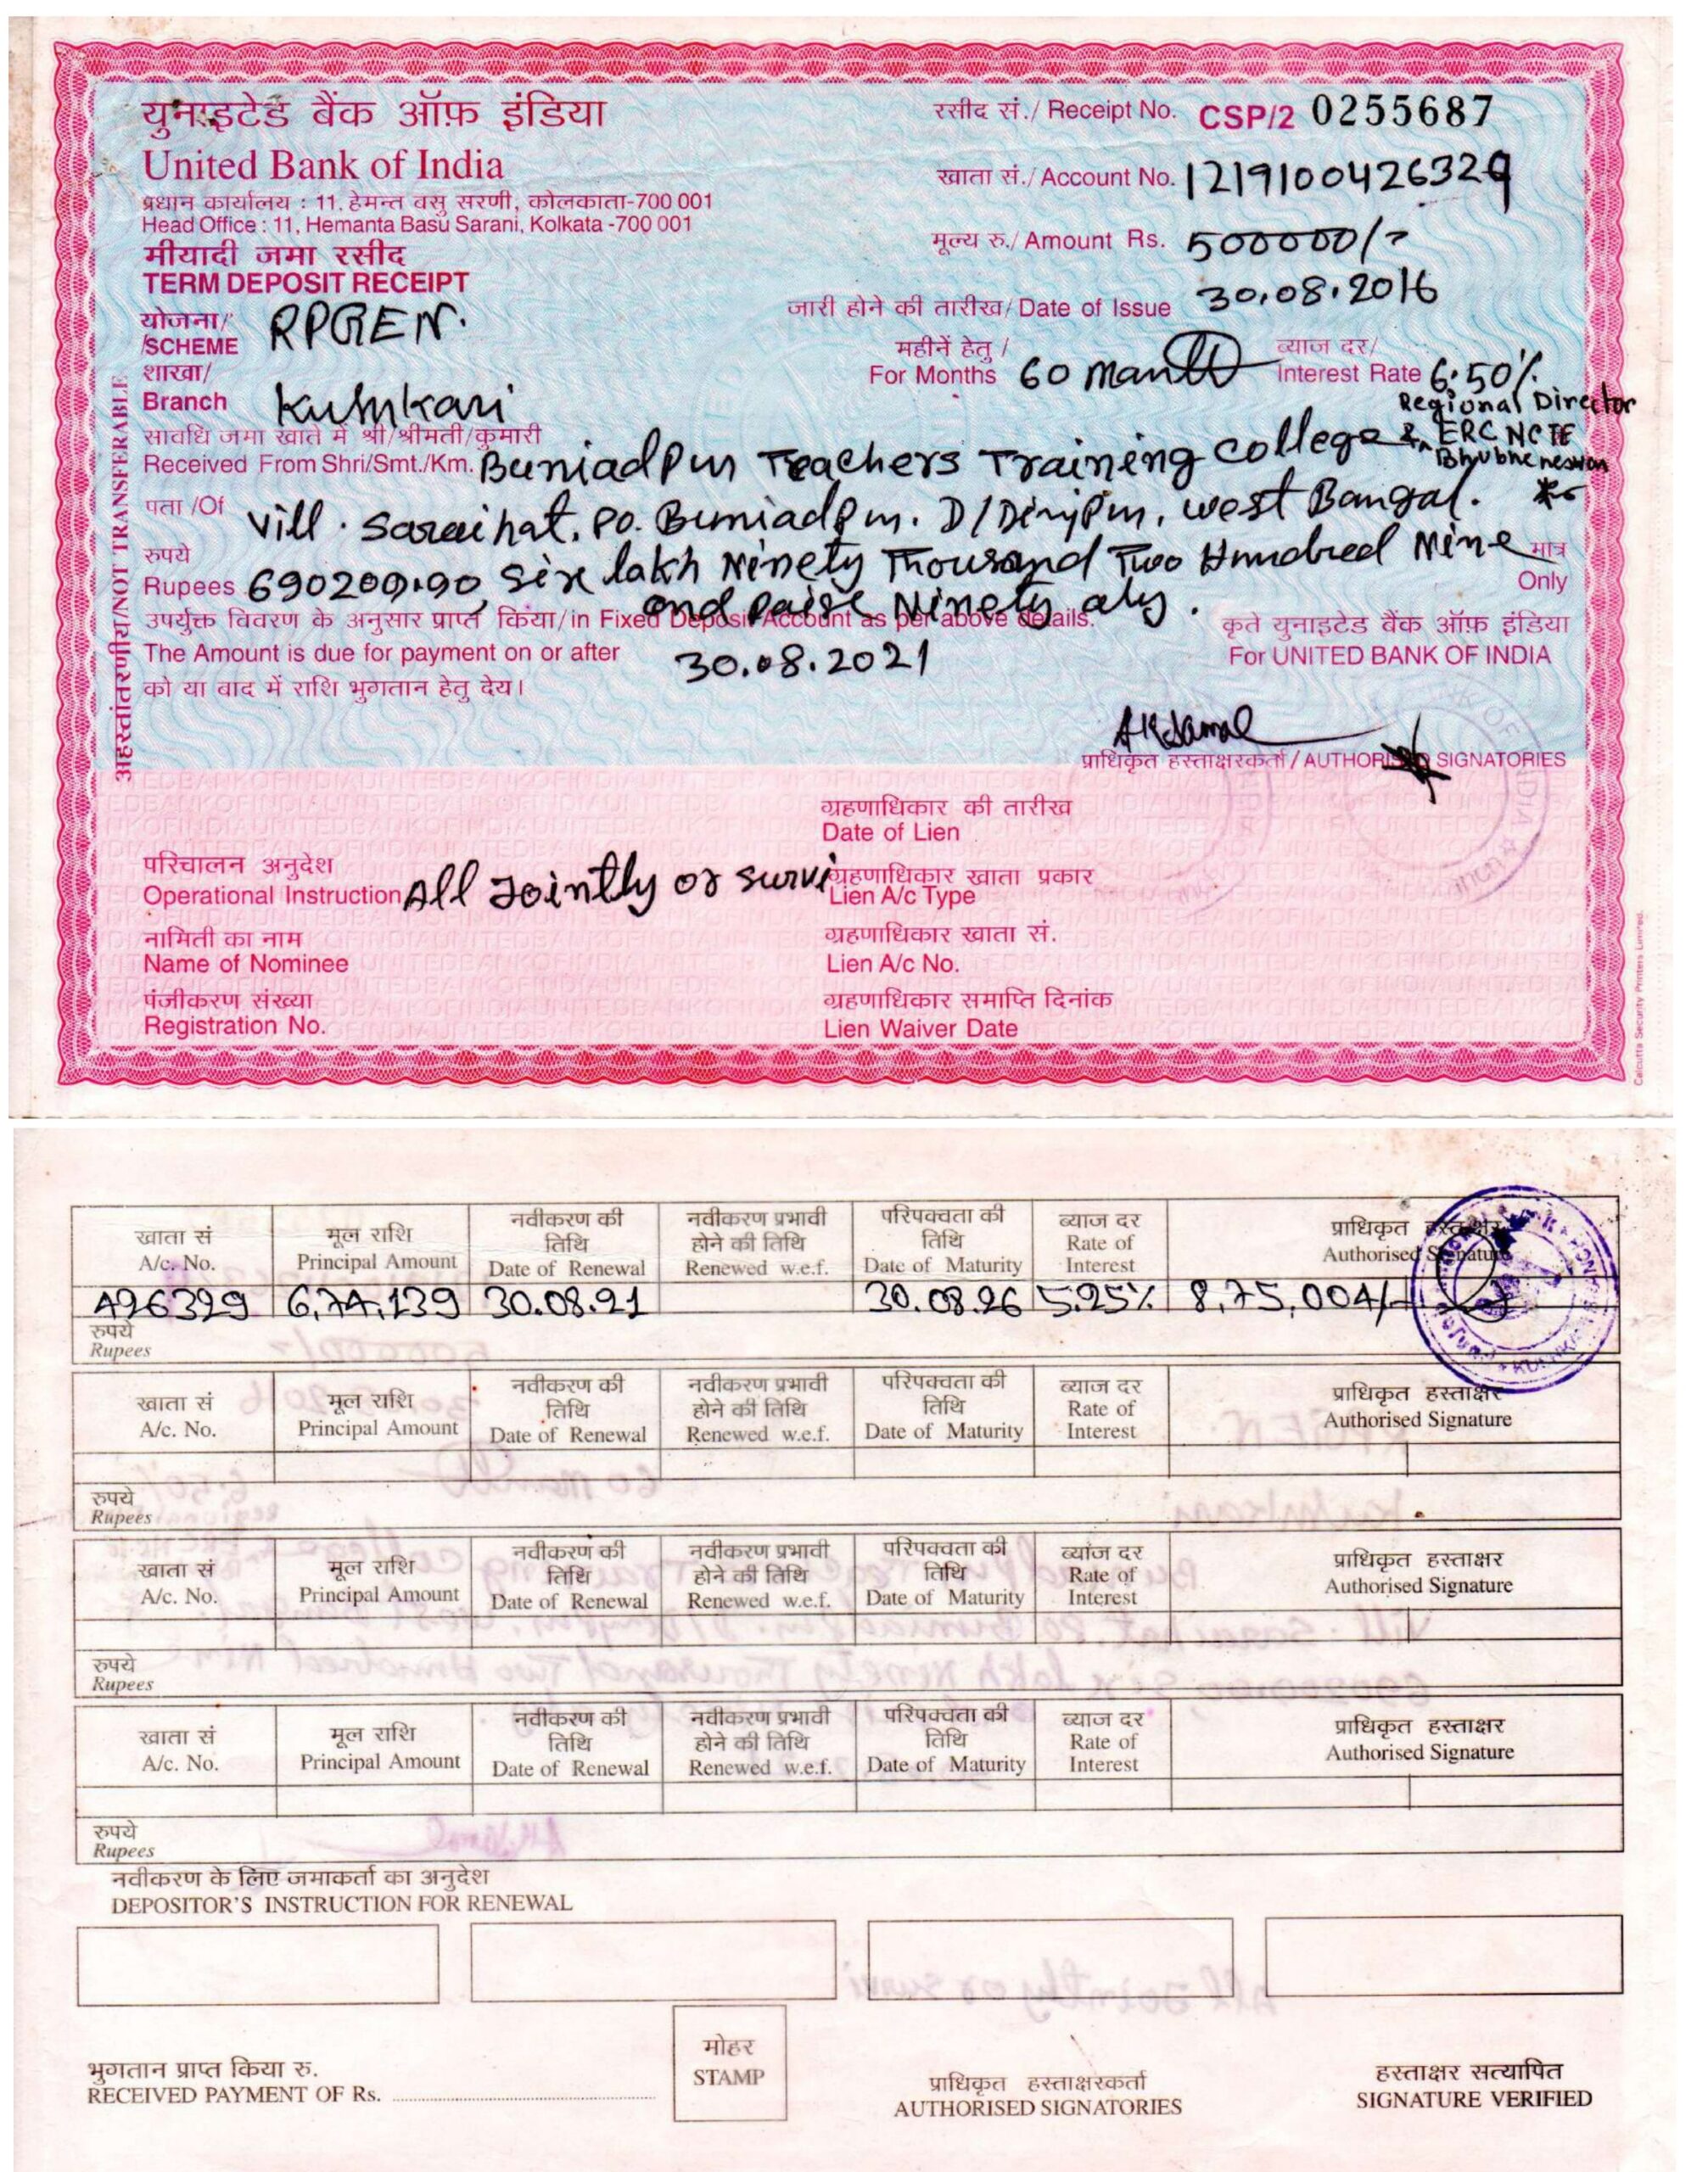 युनाइटेड बैंक ऑफ़ इंडिया
United Bank of India
प्रधान कार्यालय : 11, हेमन्त वसु सरणी, कोलकाता-700 001
Head Office : 11, Hemanta Basu Sarani, Kolkata -700 001
मीयादी जमा रसीद
TERM DEPOSIT RECEIPT
रसीद सं./ Receipt No. CSP/2 0255687
खाता सं./ Account No. 1219100426329
मूल्य रु./ Amount Rs. 500000/-
जारी होने की तारीख/ Date of Issue 30.08.2016
योजना/
/SCHEME RPGEN.
महीनें हेतु /
For Months 60 Month
ब्याज दर/
Interest Rate 6.50%
शाखा/
Branch Kushkari
Regional Director
ERC NCTE
सावधि जमा खाते में श्री/श्रीमती/कुमारी
Received From Shri/Smt./Km. Buniadpur Teachers Training College &
पता /Of Vill. Saraihat, Po. Buniadpur. D/Dinjpur, West Bangal.
रुपये
Rupees 690209.90, Six lakh Ninety Thousand Two Hundred Nine मात्र
Only
and paise Ninety
उपर्युक्त विवरण के अनुसार प्राप्त किया/in Fixed Deposit Account as per above details.
The Amount is due for payment on or after 30.08.2021
को या वाद में राशि भुगतान हेतु देय।
कृते युनाइटेड बैंक ऑफ़ इंडिया
For UNITED BANK OF INDIA
अहस्तांतरणीय/NOT TRANSFERABLE
AKJamal
प्राधिकृत हस्ताक्षरकर्ता / AUTHORISED SIGNATORIES
ग्रहणाधिकार की तारीख
Date of Lien
परिचालन अनुदेश
Operational Instruction All Jointly or survi
ग्रहणाधिकार खाता प्रकार
Lien A/c Type
नामिती का नाम
Name of Nominee
ग्रहणाधिकार खाता सं.
Lien A/c No.
पंजीकरण संख्या
Registration No.
ग्रहणाधिकार समाप्ति दिनांक
Lien Waiver Date
Calcutta Security Printers Limited.
खाता सं मूल राशि नवीकरण की तिथि नवीकरण प्रभावी होने की तिथि परिपक्वता की तिथि ब्याज दर प्राधिकृत हस्ताक्षर
A/c. No. Principal Amount Date of Renewal Renewed w.e.f. Date of Maturity Rate of Interest Authorised Signature
426329 6,74,139 30.08.21 30.08.26 5.25% 8,75,004/-
रुपये
Rupees
खाता सं मूल राशि नवीकरण की तिथि नवीकरण प्रभावी होने की तिथि परिपक्वता की तिथि ब्याज दर प्राधिकृत हस्ताक्षर
A/c. No. Principal Amount Date of Renewal Renewed w.e.f. Date of Maturity Rate of Interest Authorised Signature
रुपये
Rupees
खाता सं मूल राशि नवीकरण की तिथि नवीकरण प्रभावी होने की तिथि परिपक्वता की तिथि ब्याज दर प्राधिकृत हस्ताक्षर
A/c. No. Principal Amount Date of Renewal Renewed w.e.f. Date of Maturity Rate of Interest Authorised Signature
रुपये
Rupees
खाता सं मूल राशि नवीकरण की तिथि नवीकरण प्रभावी होने की तिथि परिपक्वता की तिथि ब्याज दर प्राधिकृत हस्ताक्षर
A/c. No. Principal Amount Date of Renewal Renewed w.e.f. Date of Maturity Rate of Interest Authorised Signature
रुपये
Rupees
नवीकरण के लिए जमाकर्ता का अनुदेश
DEPOSITOR'S INSTRUCTION FOR RENEWAL
मोहर
STAMP
भुगतान प्राप्त किया रु.
RECEIVED PAYMENT OF Rs.
प्राधिकृत हस्ताक्षरकर्ता
AUTHORISED SIGNATORIES
हस्ताक्षर सत्यापित
SIGNATURE VERIFIED